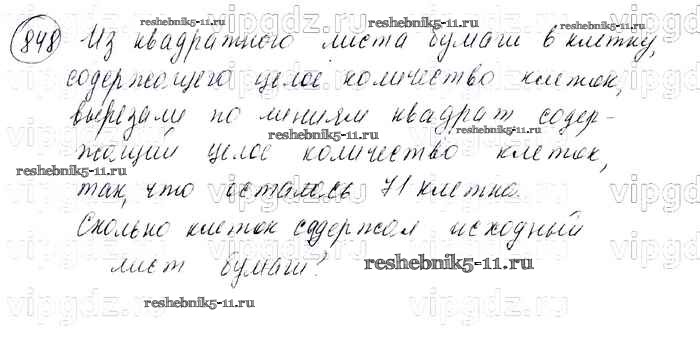 848 Из квадратного листа бумаги в клетку,
содержащего целое количество клеток,
вырезали по линиям квадрат содер-
жащий целое количество клеток,
так, что осталось 71 клетка.
Сколько клеток содержал исходный
лист бумаги?
reshebnik5-11.ru
reshebnik5-11.ru
reshebnik5-11.ru
reshebnik5-11.ru
reshebnik5-11.ru
reshebnik5-11.ru
reshebnik5-11.ru
vipgdz.ru